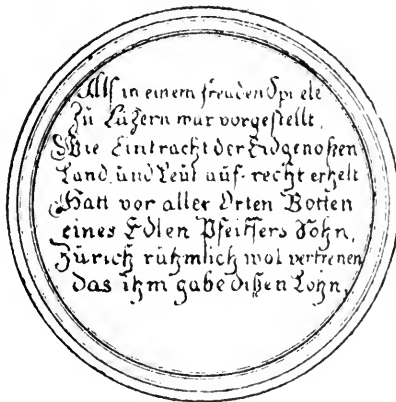 Alß in einem freuden Spiele
Zu Lužern war vorgestellt,
Wie Eintracht der Eidgenoßen
Land und Leut auf-recht erhelt
Hatt vor aller Orten Botten
eines Edlen Pfeiffers Sohn,
Zürich rühmlich wol vertretten
das ihm gabe dißen Lohn,